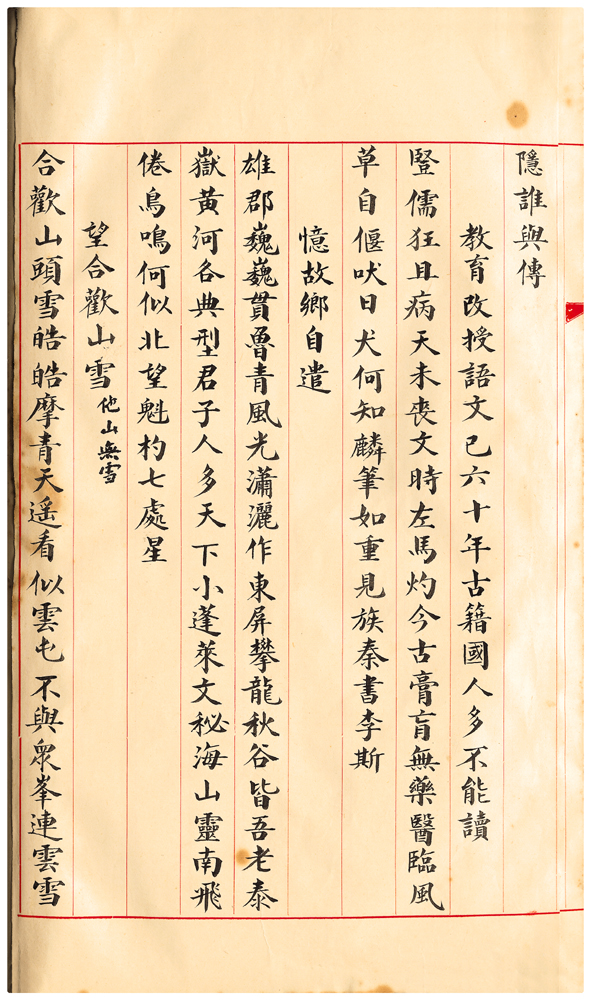 隱誰與傳
教育改授語文已六十年古籍國人多不能讀
豎儒狂且病天未喪文時左馬灼今古膏肓無藥醫臨風
草自偃吠日犬何知麟筆如重見族秦書李斯
憶故鄉自遣
雄郡巍巍貫魯青風光瀟灑作東屏攀龍秋谷皆吾老泰
嶽黃河各典型君子人多天下小蓬萊文秘海山靈南飛
倦鳥鳴何似北望魁杓七處星
望合歡山雪他山無雪
合歡山頭雪皓皓摩青天遥看似雲屯不與眾峯連雲雪